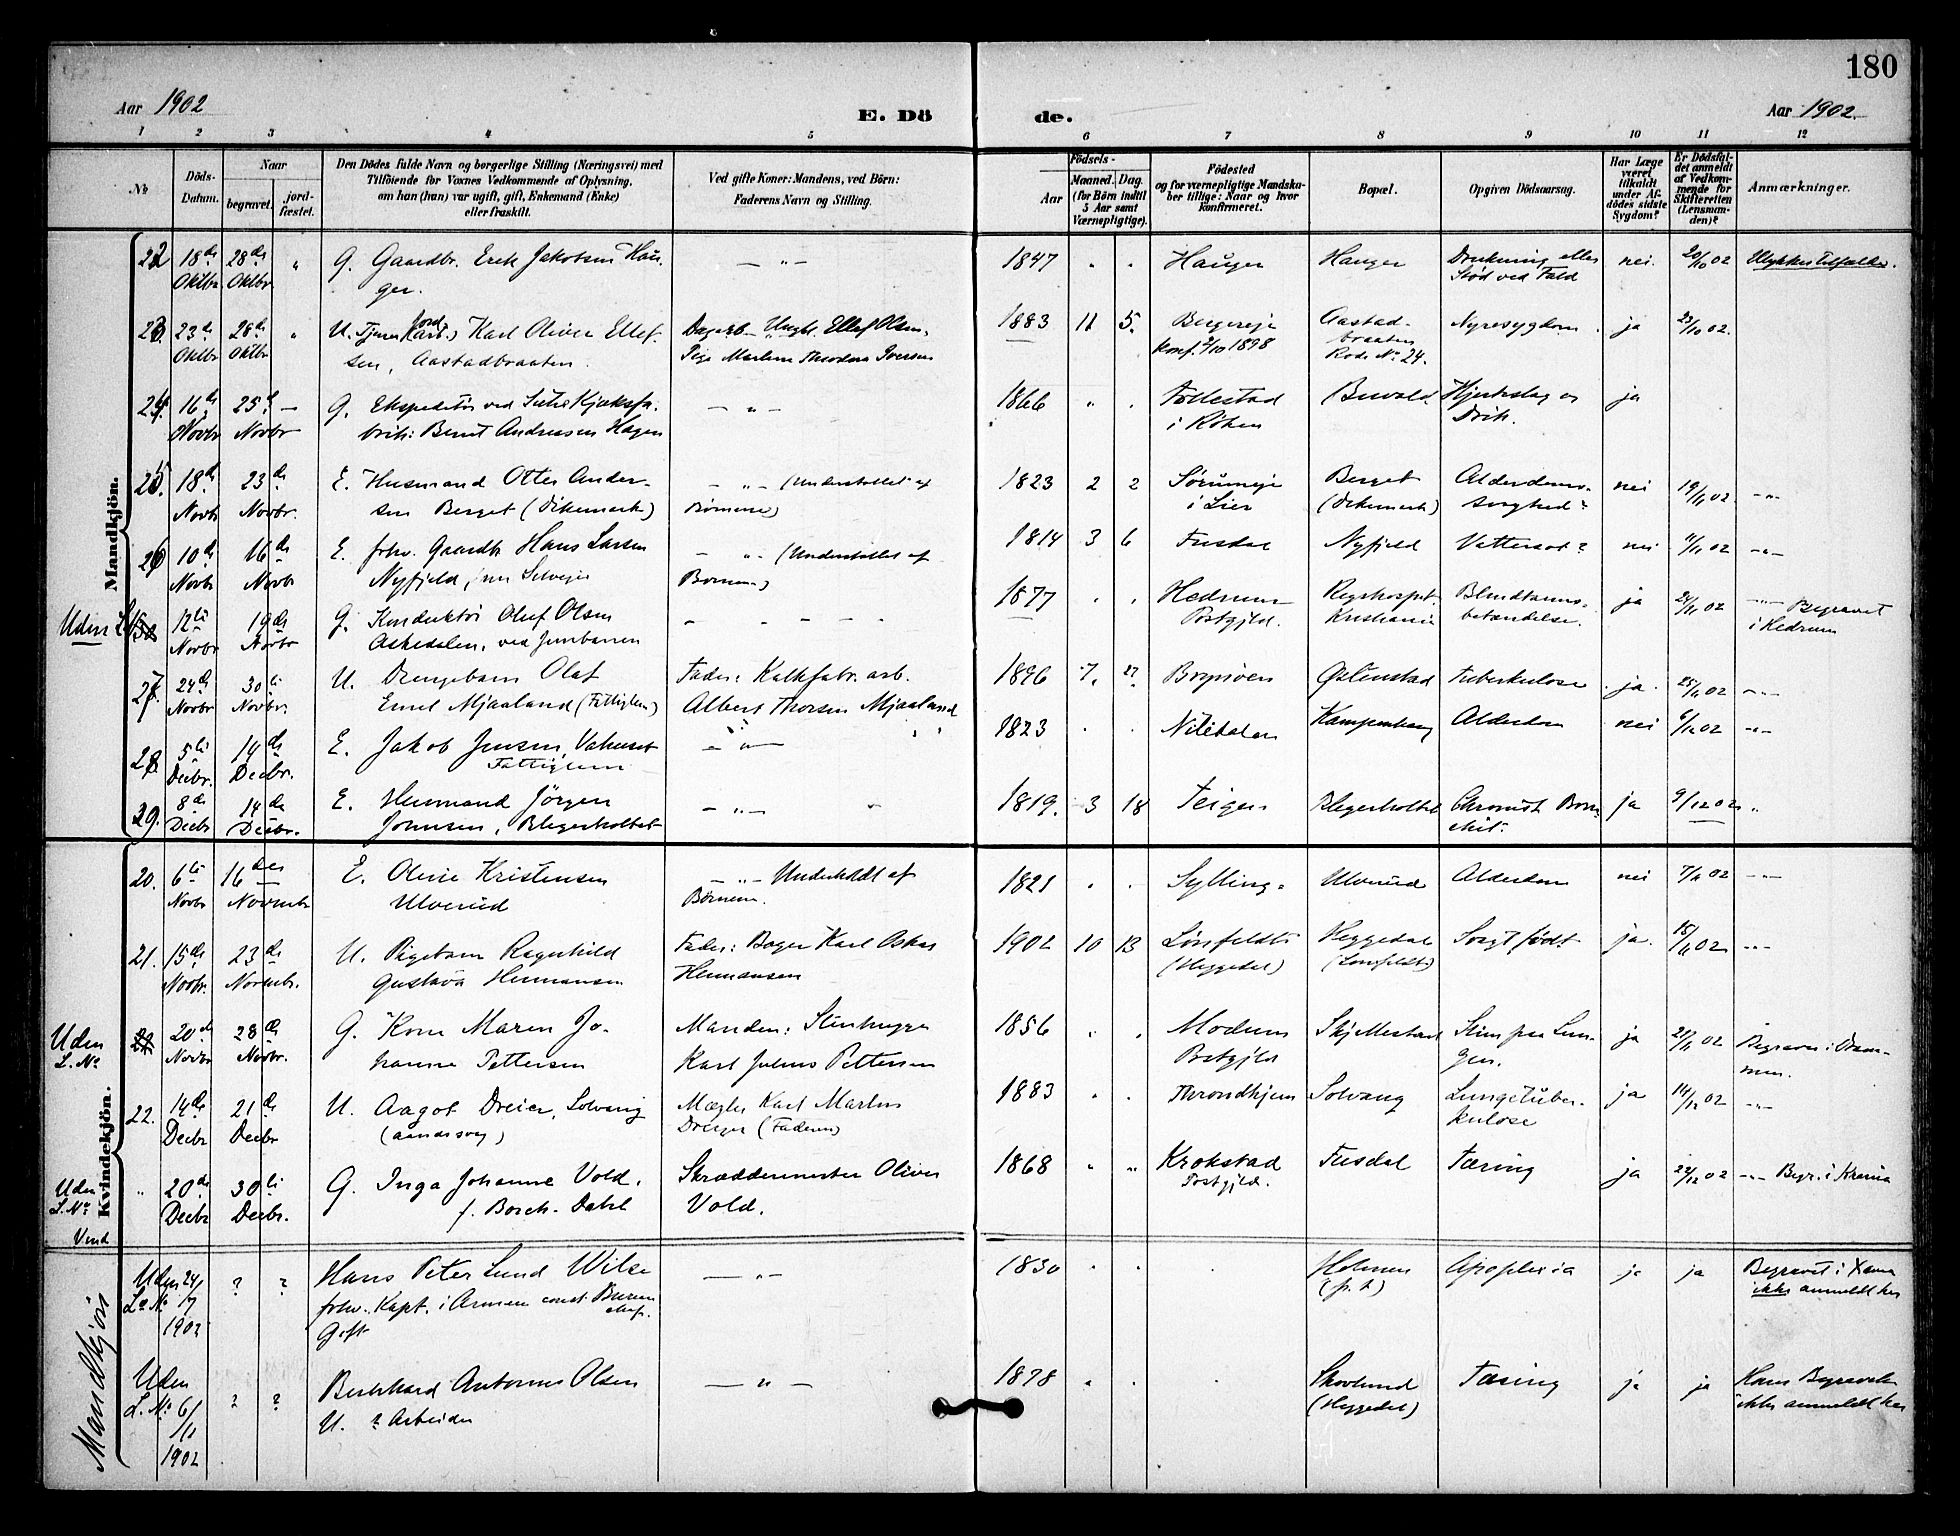 180
Aar 1902
E. Dö
de.
Aar 1902.
1 2 3 4 5 6 7 8 9 10 11 12
No
Döds-
Datum.
Naar
begravet.
jord-
fæstet.
Den Dödes fulde Navn og borgerlige Stilling (Næringsvei) med
Tilföiende for Voxnes Vedkommende af Oplysning,
om han (hun) var ugift, gift, Enkemand (Enke)
eller fraskilt.
Ved gifte Koner: Mandens, ved Börn:
Faderens Navn og Stilling.
Födsels-
Aar
Maaned. Dag.
(for Börn indtil
5 Aar samt
Værnepligtige).
Födested
og for værnepligtige Mandska-
ber tillige: Naar og hvor
konfirmeret.
Bopæl.
Opgiven Dödsaarsag.
Har Læge
været
tilkaldt
under Af-
dödes sidste
Sygdom?
Er Dödsfal-
det anmeldt
af Vedkom-
mende for
Skifteretten
(Lensman-
den)?
Anmærkninger.
Mandkjön.
22 18de Oktbr 28de Oktbr " G. Gaardbr. Erik Jakobsen Hau-
ger. — " — 1847 " " Hauger Hauger Drukning eller
Stød ved Fald nei. 20/10 02 Ulykkestilfælde.
23 23de Oktbr 28de Oktbr " U. Tjener Karl Oliver Ellef-
sen, Aastadbraaten. Dagarb. Ungk. Ellef Olsen.
Pige Marlene Theodora Iversen 1883 11 5. Bergereje
Konf. 2/10 1898 Aastad-
braaten
Rode No 24. Nyresygdom ja 23/10 02.
24. 16de Novbr 25de Novbr — G. Ekspeditør ved
Bernt Andreasen Hagen — " — 1866 " " Tollestad
i Røken Hjerteslag og
Drik. ja
25. 18de Novbr 23de Novbr. E. Husmand Otter Ander-
sen Berget (Dikemark) — " — (Understøttet af
Børnene) 1823 2 2 Sørumeje
i Lier Berget
(Dikemark) Alderdoms-
svaghed? nei 19/11 02 — " —
26 10de Novbr 16de Novbr E. frhv. Gaardbr Hans Larsen
Nyfjeld, — " — (Understøttet af
Børnene) 1814 3 6 Fusdal Nyfjeld Vattersot? nei 11/11 02 — " —
Uden L. No 12te Novbr 19de Novbr G. Konduktør Oluf Olsen
Askedalen, ved Jernbanen — — — 1877 " " Hedrum
Prstgjld. Rigshospit.
Kristiania Blindtarms-
betændelse. ja 24/11 02 — " — Begravet
i Hedrum
27. 24de Novbr 30te Novbr. U. Drengebarn Olaf
Emil Mjaaland (Fattiglem) Fader: Kalkfabr. arb.
Albert Thorsen Mjaaland 1896 7. 27. Brynsøen Østenstad Tuberkulose ja. 25/11 02 — " —
28. 5te Decbr. 14de Decbr. E. Jakob Jensen,
Fattiglem — " — 1823 " " Nilsbakken Alderdom nei 6/12 02 — " —
29. 8de Decbr 14de Decbr. E. Husmand Jörgen
Johnsen, Blegerholtet — " — 1819. 3 18 Teigen Blegerholtet Chronisk Bron-
chit. ja 9/12 02 "
Kvindekjön.
20. 6te Novbr 16de Novembr E. Olivie Kristensen
Ulverud — " — Underholdt af
Børnene. 1821 " " Sylling. Ulverud Alderdom nei 7/11 02 — " —
21. 15de Novbr. 23de Novembr. U. Pigebarn Ragnhild
Gustava Hermansen Fader: Bager Karl Oskar
Hermansen 1902 10 13 Lønfeldts
(Heggedal) Heggedal
(Lønfeldts) Svagt født ja. 15/11 02 — " —
Uden L. No 20de Novbr 28de Novbr. G. Kone Maren Jo-
hanne Pettersen Manden: Stenhugger
Karl Julius Pettersen 1856 " " Modum
Prstgjld Skjellestad Slim paa Lun-
gen. ja 21/11 02 Begravet i Dram-
men.
22. 14de Decbr 21de Decbr U. Aagot Dreier, Solvang
Mægler Karl Marius
Dreyer (Faderen) 1883 " " Throndhjem Solvang Lungetuber-
kulose ja 14/12 02 — " —
Uden L. No " 20de Decbr 30te Decbr. G. Inga Johanne Vold.
f. Borch-Dahl Skræddermester Oliver
Vold. 1868 " " Krokstad
Prstgjld. Fusdal Tæring ja 22/12 02 — " — Begr. i Krania
Vend
Mandkjøn
Uden L. No 24/7 1902 ? ? Hans Peter Lund Wilse
frhv. Kapt. i Armeen const. Bureau
chef.
Gift — " — 1830 " " " Holmen
(p. t.) Apoplexia ja ja Begravet i Xania
ikke anmeldt her
Uden L. No 6/11 1902 ? ? Bernhard Antonius Olsen
U. ? Arbeider — " — 1878 " " " Skovlund
(Heggedal) Tæring ja ja Hans Begravelse
ikke anmeldt her